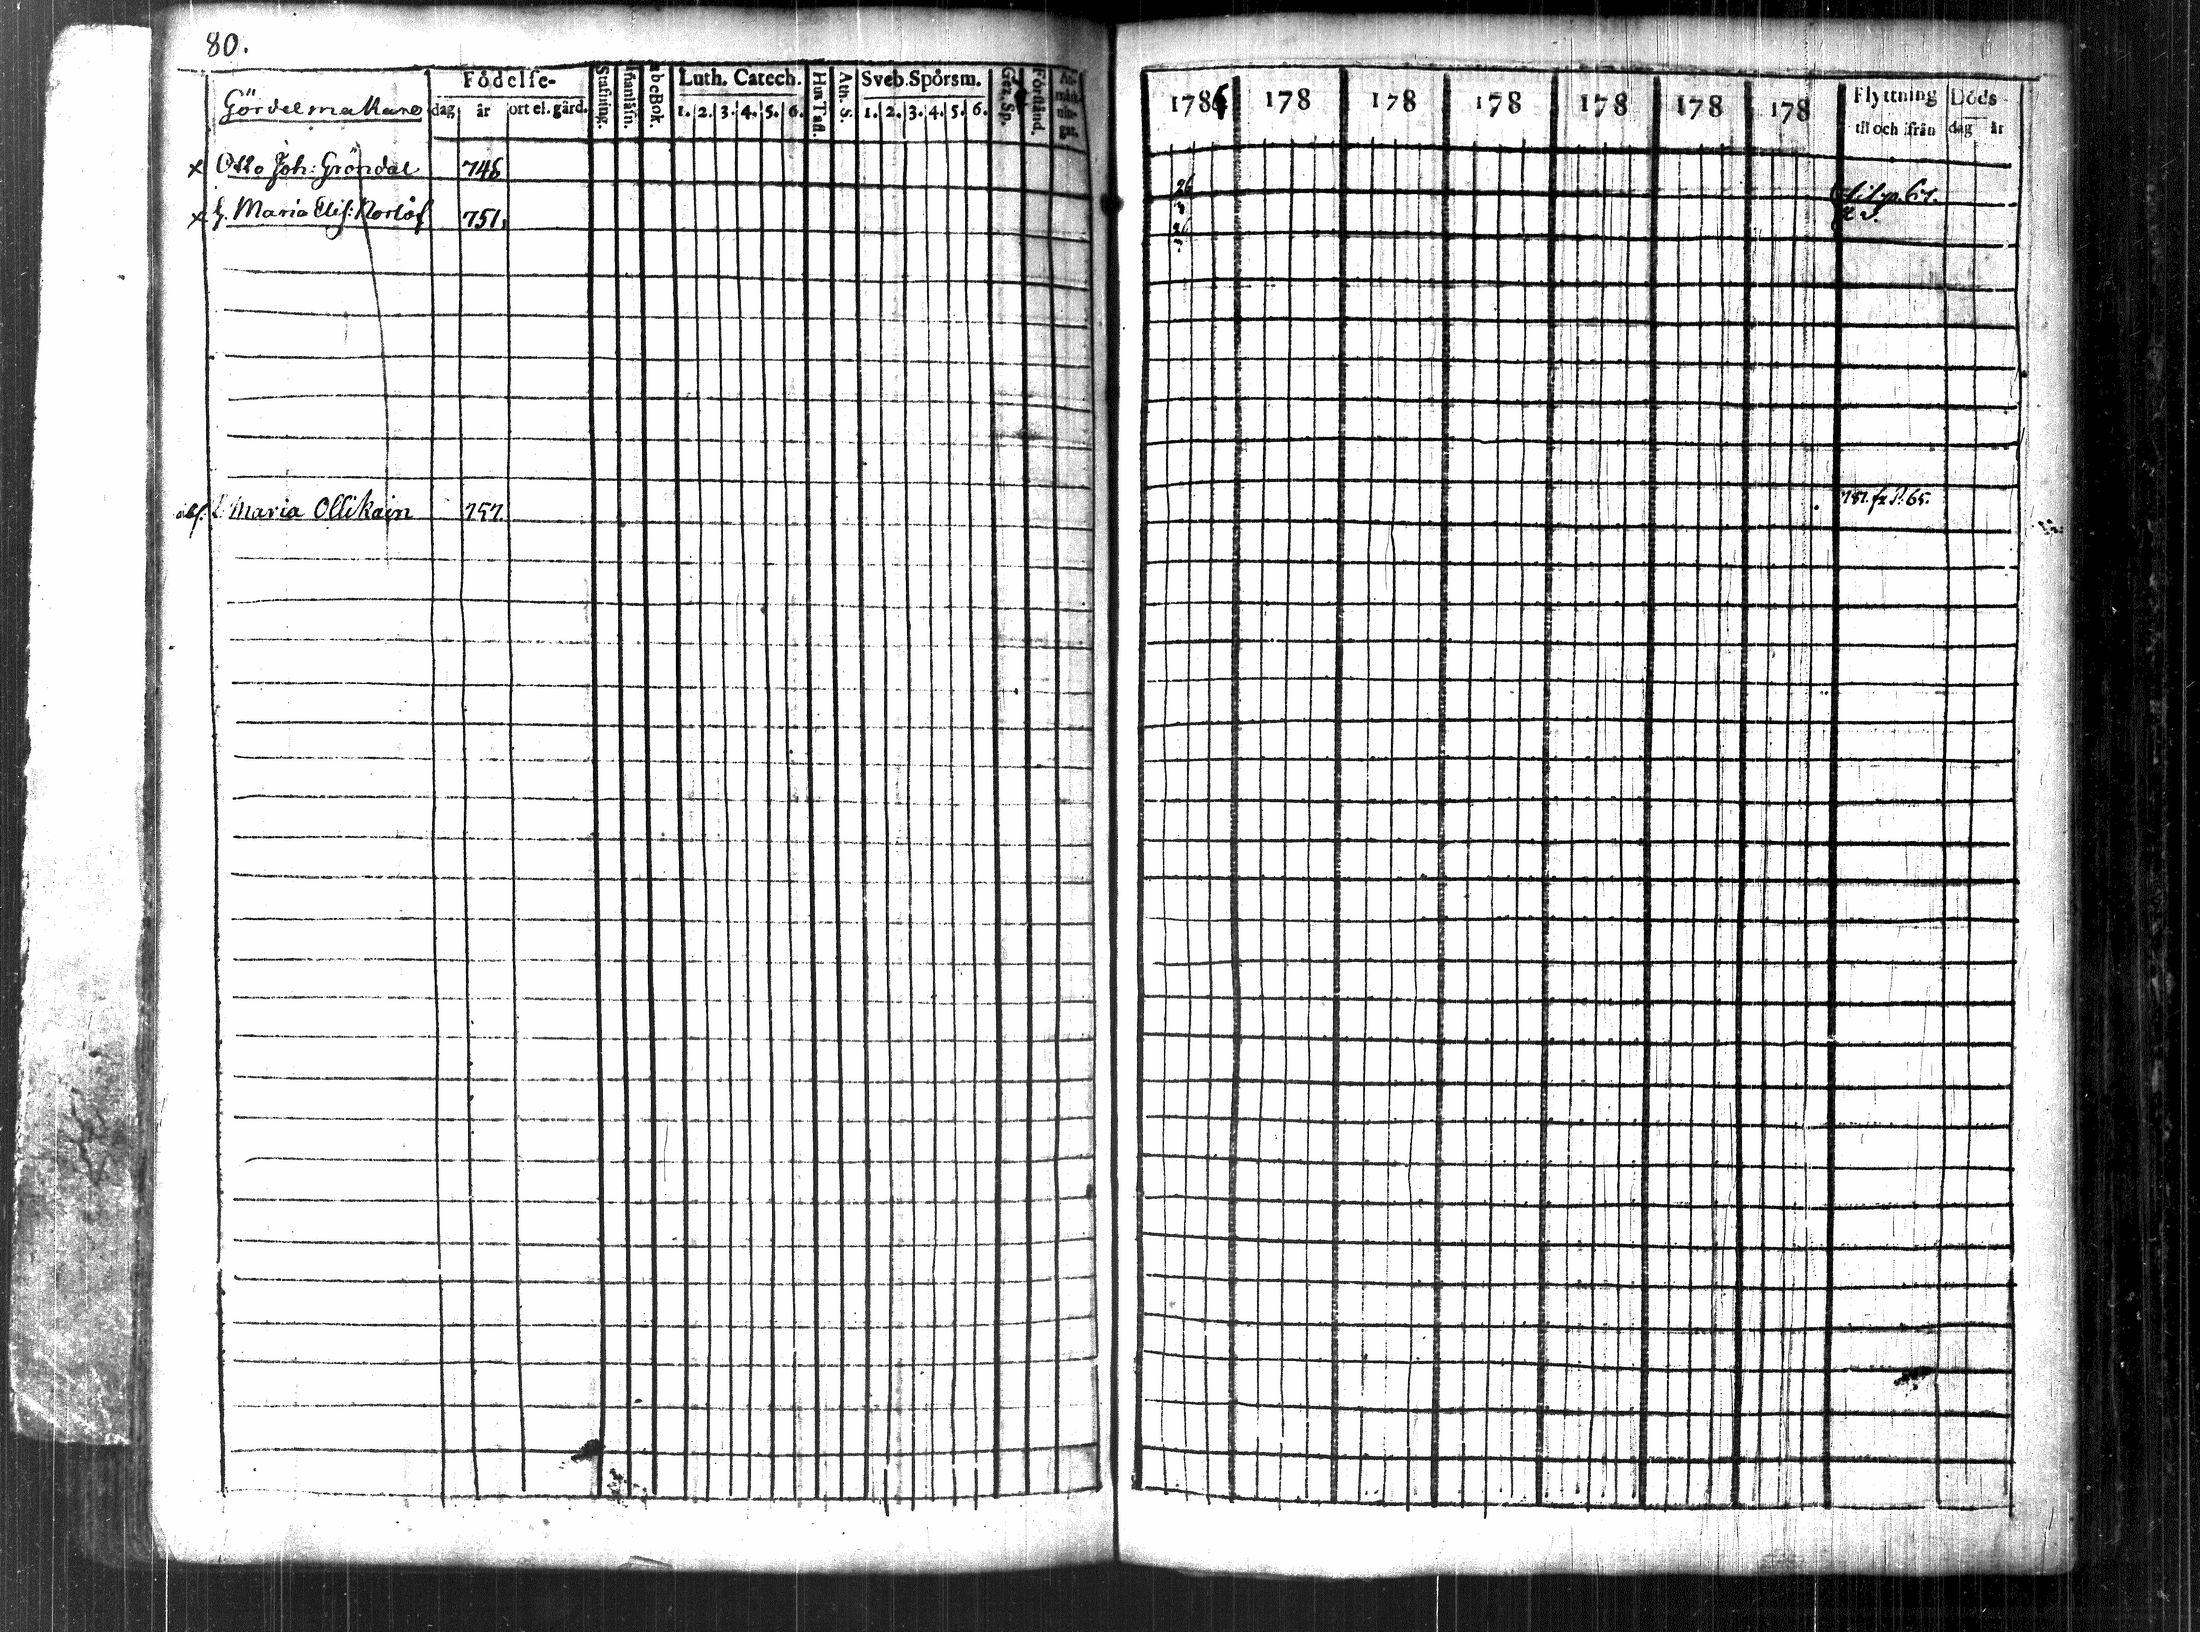 80.
Gördelmakare
Födelse-
dag år ort el. gård.
Stafning. Innanläsn. AbcBok.
Luth. Catech.
1. 2. 3. 4. 5. 6.
HusTafl. Ath. S.
Sveb. Spörsm.
1. 2. 3. 4. 5. 6.
Gez. Sp. Förstånd. An-märk-nin-gar.
1786 178 178 178 178 178 178
Flyttning til och ifrån
Döds-
dag år
x Otto Joh: Gröndal 746
x h. Maria Elis: Norlöf 751.
26
26
til p. 67.
abs. Maria Ollikain 757.
787. fr. P. 65.